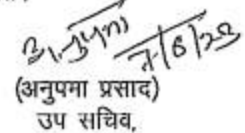 अनुपमा
7/6/23
(अनुपमा प्रसाद)
उप सचिव,